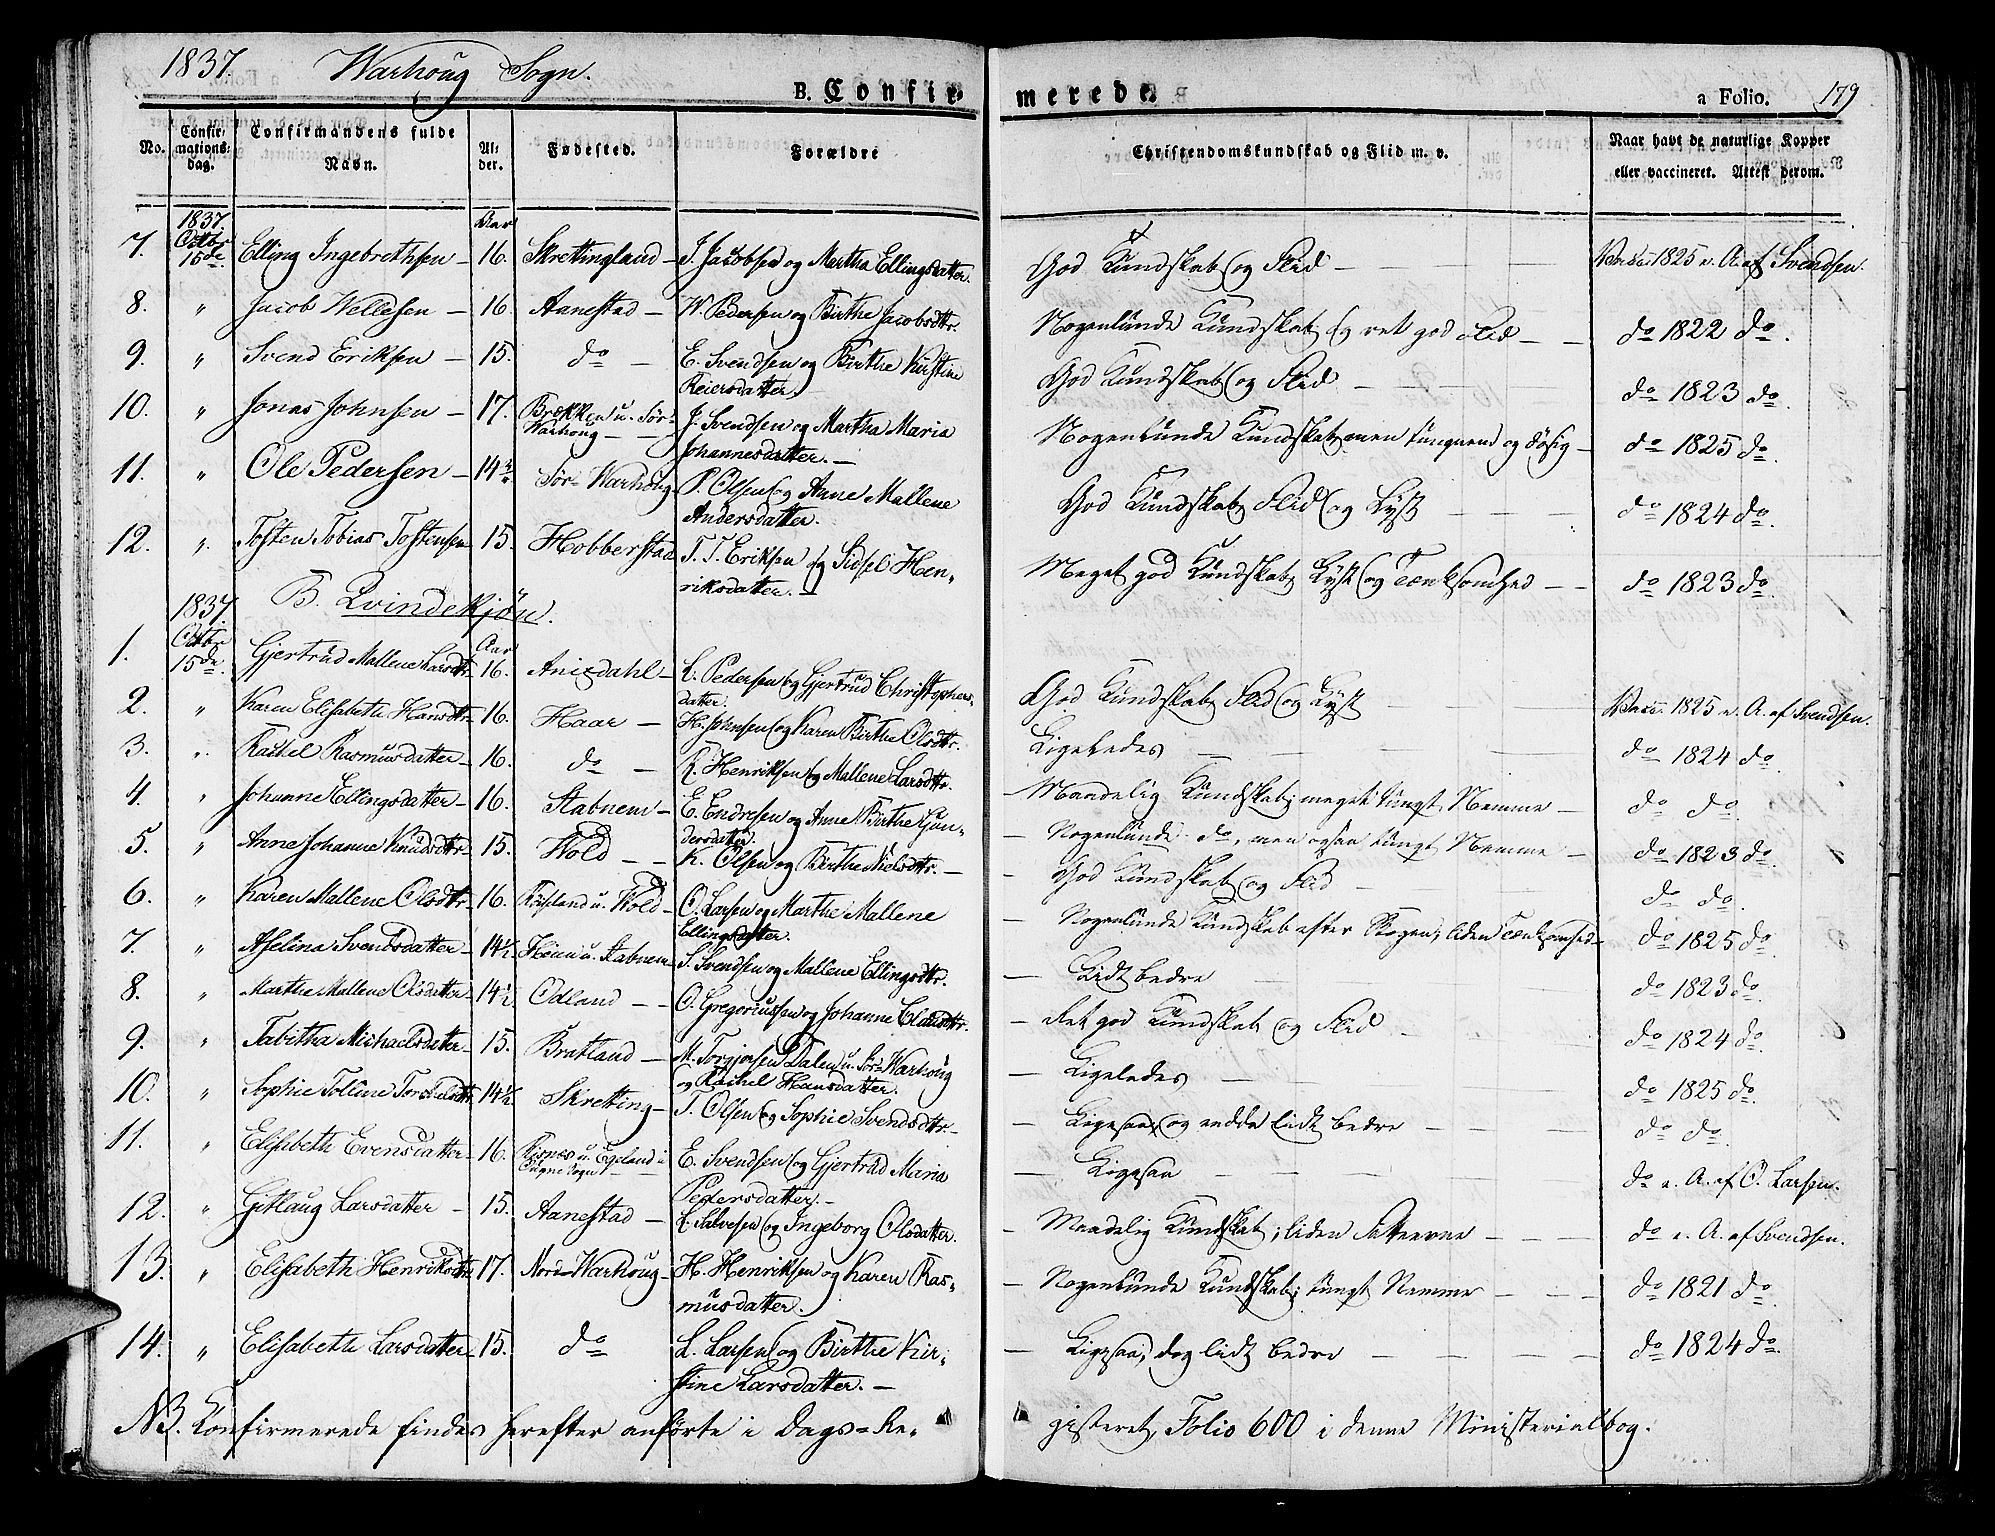 1837. Warhoug Sogn.
B. Confirmerede. a Folio. 179
No. Confirmationsdag. Confirmandens fulde Navn. Alder. Fødested. Forældre Christendomskundskab og Flid m. v. Naar havt de naturlige Kopper eller vaccineret. Attest derom.
1837. Aar
7. Octbr 15de Elling Ingebrethsen – 16. Skrettingland – J. Jacobsen og Martha Ellingsdatter. God Kundskab og Flid – Vacc. 1825 e. A. af Svendsen.
8. " Jacob Wellesen – 16 Aanestad – W. Pedersen og Birthe Jacobsdtr. Nogenlunde Kundskab og ret god Flid – do 1822 do.
9. " Svend Eriksen – 15. do – E. Svendsen og Birthe Kirstine Reiersdatter. God Kundskab og Flid – do 1823 do.
10. " Jonas Johnsen – 17. Brekken u. Sør-Warhoug – J. Svendsen og Martha Maria Johannesdatter. – Nogenlunde Kundskab, men og døsig – do 1825 do.
11. " Ole Pedersen – 14 Sør-Warhoug P. Olsen og Anne Mallene Andersdatter. God Kundskab, Flid og Lyst – do 1824 do.
12. " Tosten Tobias Tostensen 15. Hobberstad T. T. Eriksen og Sidsel Henriksdatter. – Meget god Kundskab, Lyst og Tænksomhed – do 1823 do.
1837. B. Qvindekjøn.
Aar
1. Octbr 15de Gjertrud Mallene Larsdtr – 16. Anisdahl – L. Pedersen og Gjertrud Christophersdatter. God Kundskab, Flid og Lyst Vacc. 1825 e. A. af Svendsen.
2. " Karen Elisabeth Hansdtr – 16. Haar – H. Johnsen og Karen Birthe Olsdtr. Ligeledes – do 1824 do.
3. " Rachel Rasmusdatter – 16. do – R. Henriksen og Mallene Larsdtr. – Maadelig Kundskab; meget tungt Nemme – do do.
4. " Johanne Ellingsdatter – 16. Stabnem – E. Endresen og Anne Birthe Gundersdatter. – Nogenlunde do, men ogsaa tungt Nemme – do 1823 do.
5. " Anne Johanne Knudsdtr – 15. Wold – K. Olsen og Birthe Nielsdtr. – – God Kundskab og Flid – do do.
6. " Karen Mallene Olsdtr – 16. Røisland u. Wold – O. Larsen og Marthe Mallene Ellingsdatter. – Nogenlunde Kundskab efter Bogen; liden Tænksomhed – do 1825 do.
7. " Aselina Svendsdatter – 14½ u. Stabnem – S. Svendsen og Mallene Ellingsdtr. – Lidt bedre do 1823 do.
8. " Marthe Mallene Olsdatter – 14½ Odland – O. Gregoriussen og Johanne Olsdtr. – Ret god Kundskab og Flid – do 1824 do.
9. " Tabitha Michaelsdatter – 15. Bratland – M. Torgjersen Dalen u. Sør-Warhoug og Rachel Hansdatter. – Ligeledes – do 1825 do.
10. " Sophie Tolline Torkelsdtr – 14½ Skretting – T. Olsen og Sophie Svendsdtr. – – Ligesaa, og endda lidt bedre – do do.
11. " Elisabeth Evensdatter – 16. Risnes u. Egeland i Sogn – E. Svendsen og Gjertrud Maria Pedersdatter. – – Ligesaa – do e. A. af O. Larsen.
12. " Gitlaug Larsdatter – 15. Aanestad – L. Salvesen og Ingeborg Olsdatter. – Maadelig Kundskab; liden – do e. A. af Svendsen.
13. " Elisabeth Henriksdtr – 17. Nord-Warhoug – H. Henriksen og Karen Rasmusdatter. – Nogenlunde Kundskab; tungt Nemme – do 1821 do.
14. " Elisabeth Larsdatter – 15. do L. Larsen og Birthe Kirstine Larsdatter. – – Ligesaa, dog lidt bedre – do 1824 do.
NB. Confirmerede findes herefter anførte i Dags-Registeret, Folio 600 i denne Ministerialbog.